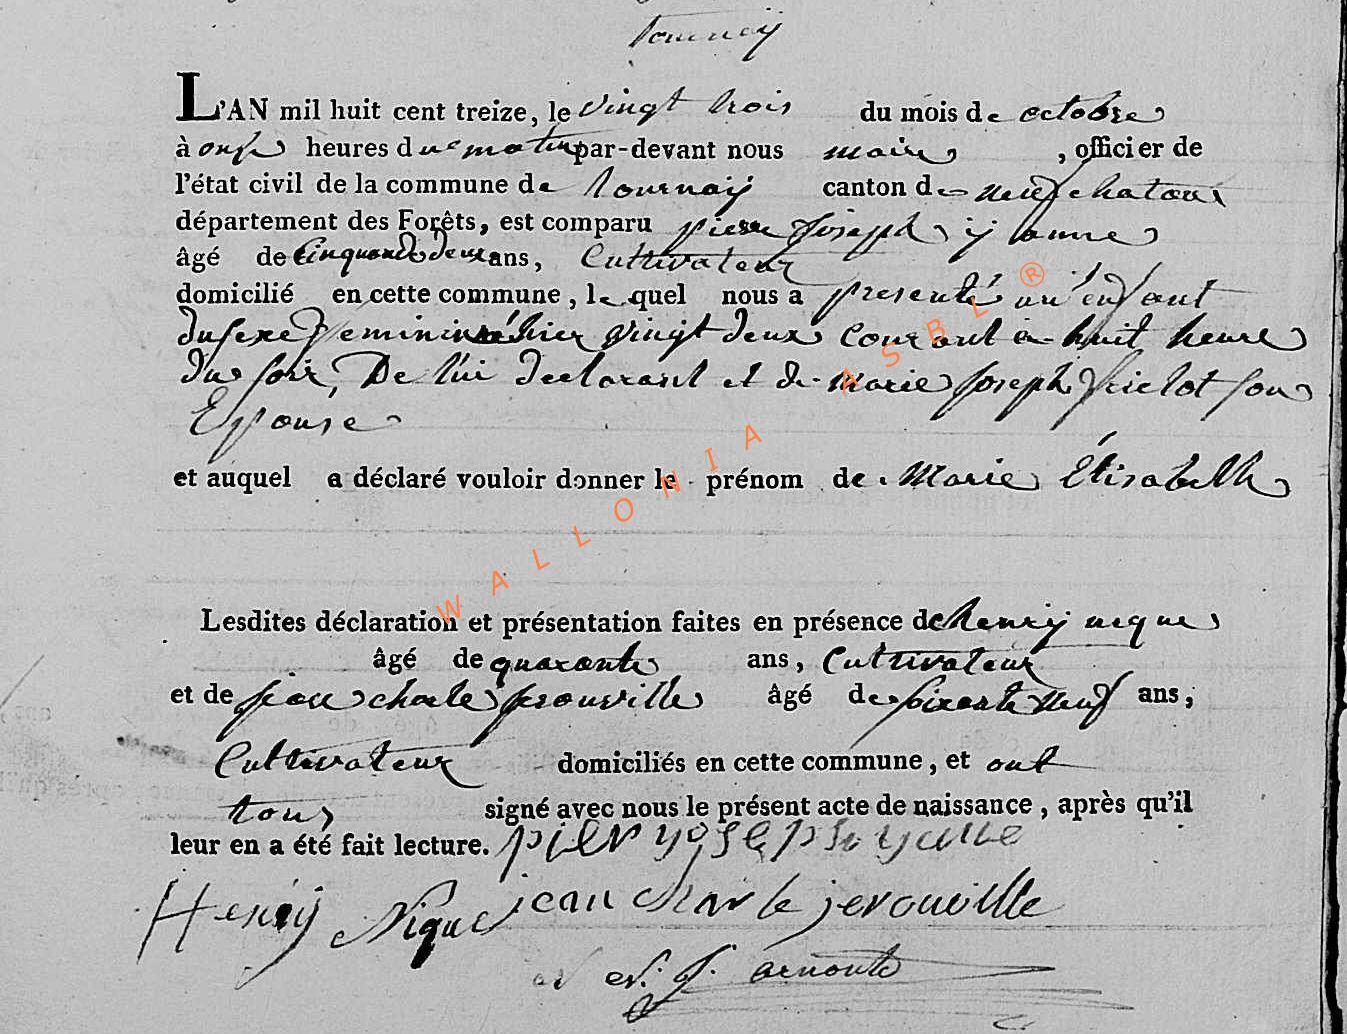 tournay
L'AN mil huit cent treize, le vingt trois du mois de octobre
à onse heures du matin par-devant nous maire , officier de
l'état civil de la commune de tournay canton de neufchateau
département des Forêts, est comparu pierre Joseph yanne
âgé de Cinquante deux ans, Cultivateur
domicilié en cette commune, lequel nous a presenté un enfant
du sexe feminin né hier vingt deux courant a huit heure
du soir, De lui declarant et de marie Joseph son
Epouse
et auquel a déclaré vouloir donner le prénom de Marie Élisabeth
WALLONIA ASBL ®
Lesdites déclaration et présentation faites en présence de henry nique
âgé de quarante ans, Cultivateur
et de jean charle jerouville âgé de soixante neuf ans,
Cultivateur domiciliés en cette commune, et ont
tous signé avec nous le présent acte de naissance, après qu'il
leur en a été fait lecture. pier yoseph yanne
Henry Nique jean charle jerouville
J. arnould